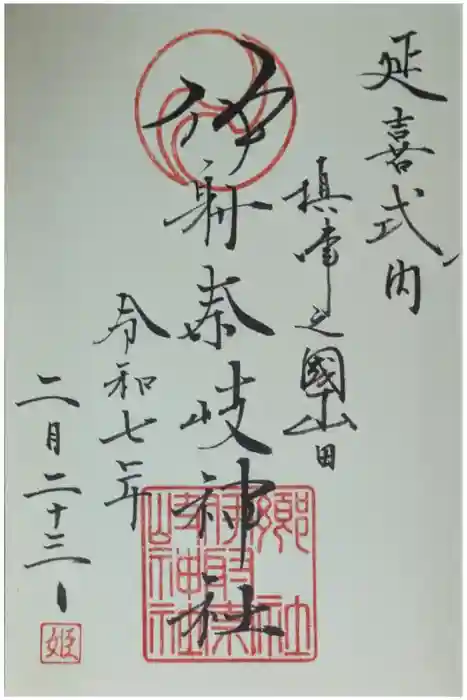 延喜式内
摂津之國山田
伊射奈岐神社
令和七年
二月二十三日
郷社
伊射奈
岐神社
姫